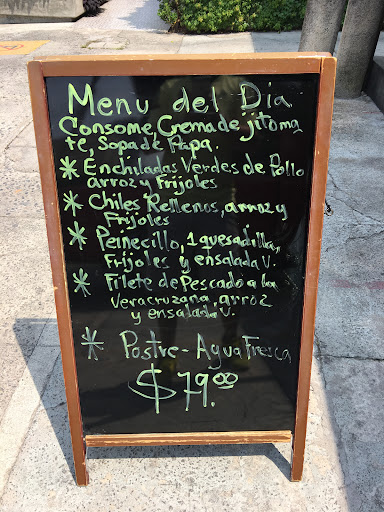 Menu del Dia
Consome, Crema de jitoma
te, Sopa de Papa.
* Enchiladas Verdes de Pollo
arroz y Frijoles
* Chiles Rellenos, arroz y
Frijoles
* Peinecillo, 1 quesadilla,
Frijoles y ensalada V.
* Filete de Pescado a la
Veracruzana, arroz
y ensalada V.
* Postre - Agua Fresca
$79.00